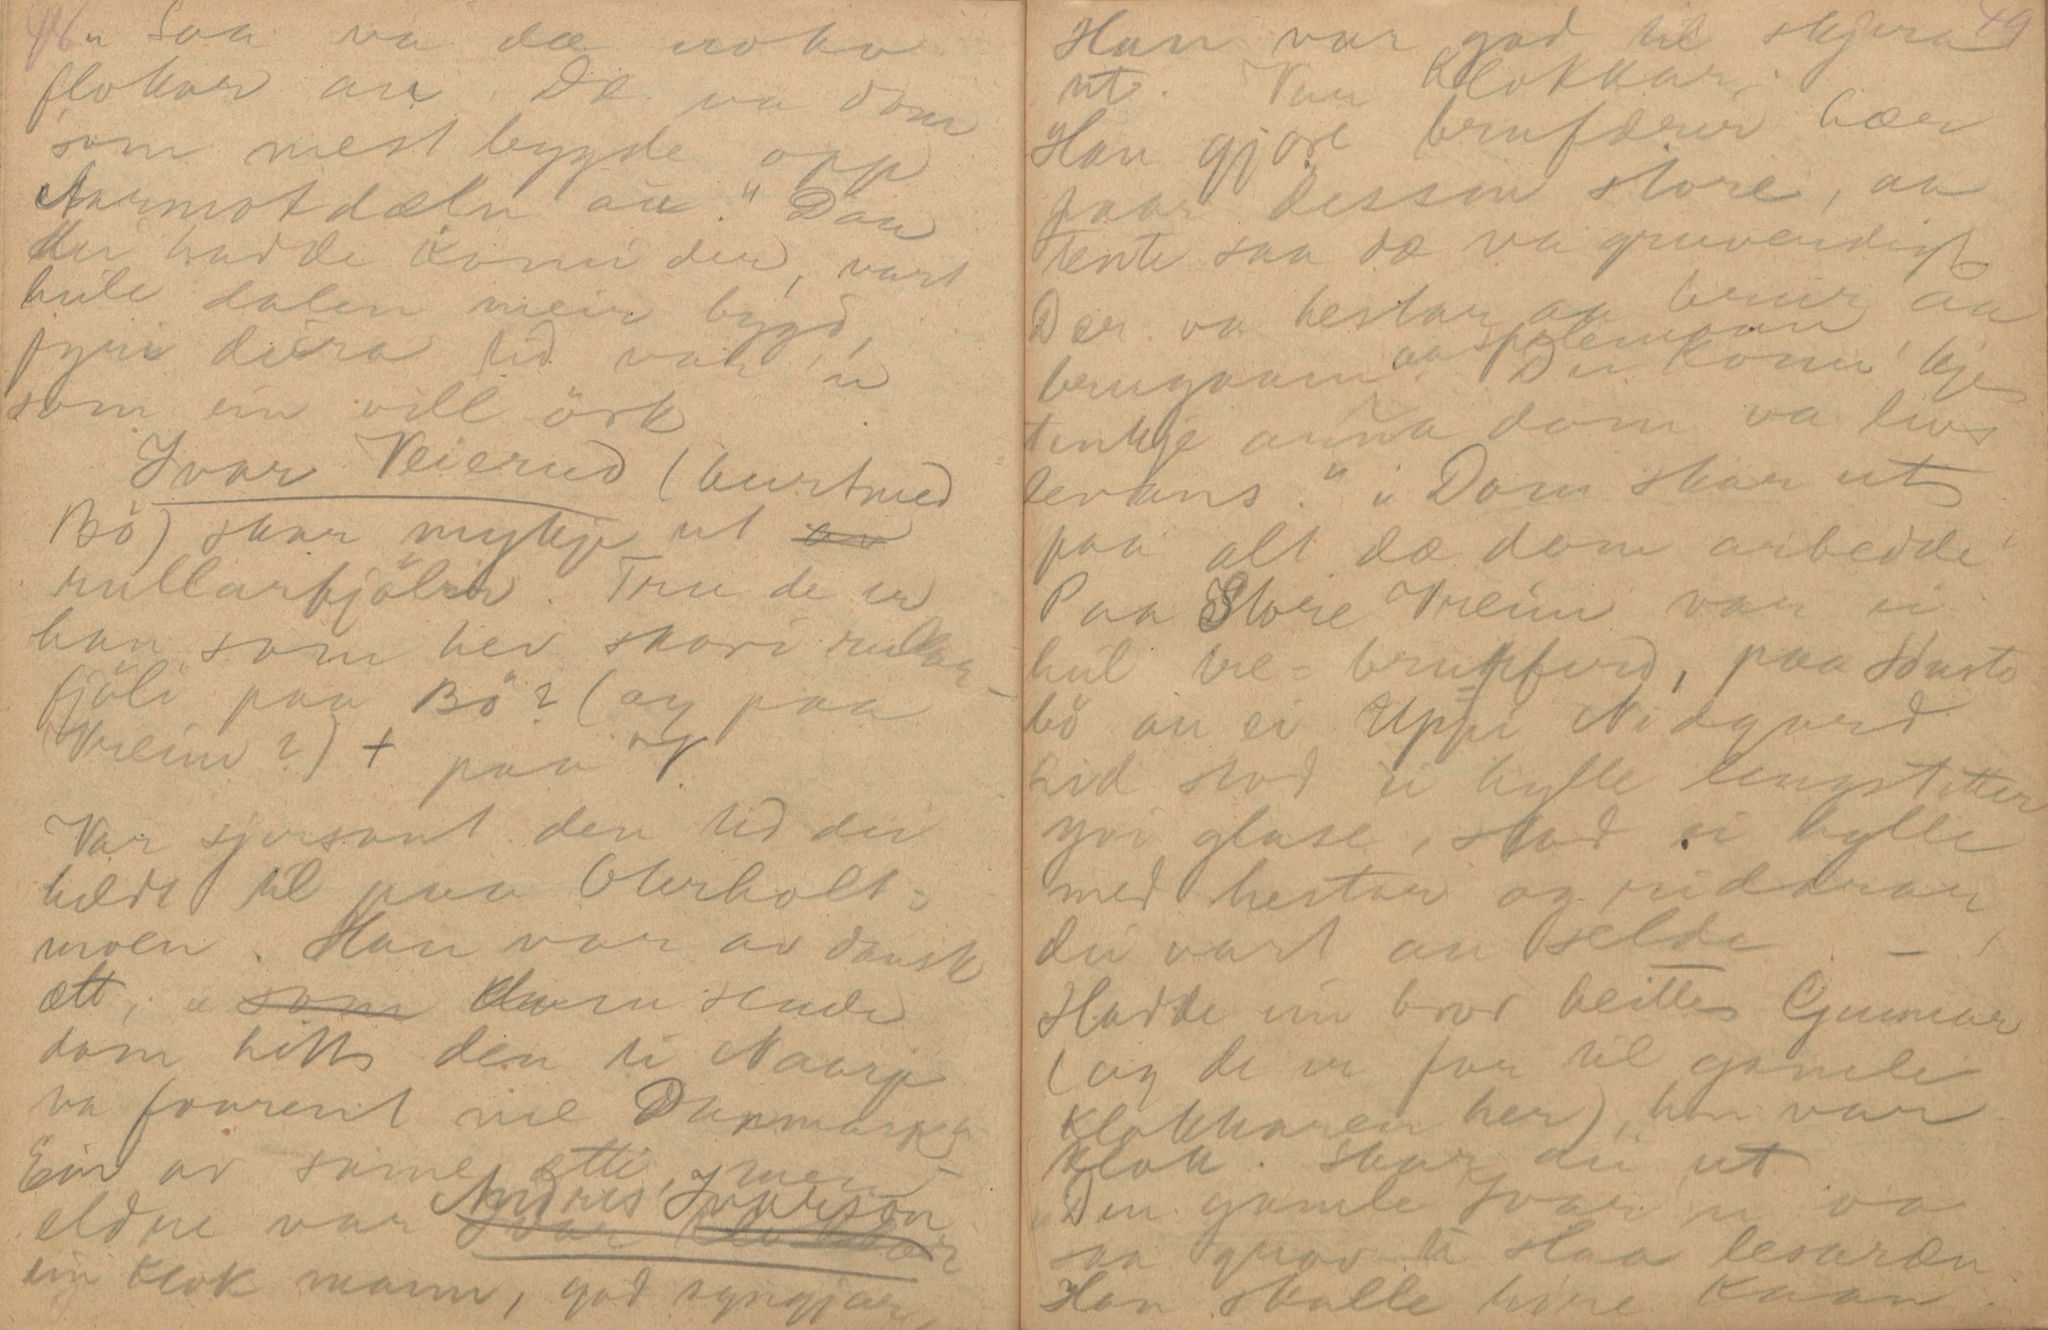 48
" Saa va dæ noko
flokar au. Dæ va dom
som mest bygde opp
Aarmotdæln au." Daa
dei hadde komi der, vart
heile dalen meir bygd,
fyri deira tid var 'n
som ein vill örk
Ivar Veierud (burtmed
Bö) skar mykje ut av
rullarfjölir. Tru de er
han som hev skori rullar-
fjöli paa Bö? (og paa
Vreim?) + paa
Var sjersant den tid dei
heldt til paa Oterholt-
moen. Han var av dansk
ætt, " som
dom hitts den ti Naarje
va foorent me Danmark"
Ein av same ætti, men
eldre var Andres Ivarson
Ivar Klokkar
ein klok mann, god syngjar,
49
Han var god til skjera
ut. Var Klokkar.
Han gjore bruferir hær
paa dessin store, aa
tente saa dæ va gruvendigt
Der va hestar aa brur aa
brugaam aa spelemann. Dei komu 'kje
tenkje anna dom va livs
levans." " Dom skar ut
paa alt dæ dom arbedde
Paa Store Vreim var ei
heil tre-brupferd, paa
bö au ei Uppi Nidgard
Lid stod ei hylle lengstetter
yvi glase, stod ei hylle
med hestar og ridarar,
dei vart au selde. —
Hadde ein bror heitte Gunnar
(og de er far til gamle
klokkaren her), han var
klok. Skar dei ut
"Den gamle Ivar'n va
saa grov ti slaa lesaræn
Han skulle höre kaan.